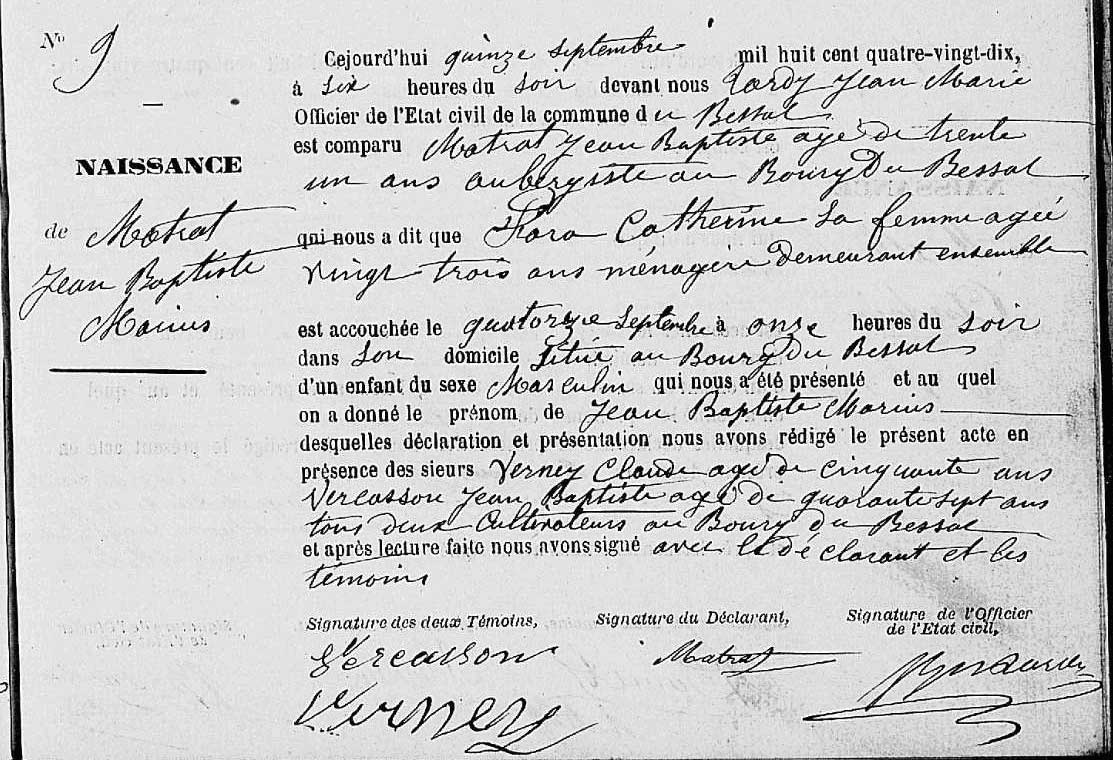 No 9
NAISSANCE
de Matrat
Jean Baptiste
Marius
Cejourd'hui quinze septembre mil huit cent quatre-vingt-dix,
à six heures du soir devant nous Tardy Jean Marie
Officier de l'Etat civil de la commune du Bessat
est comparu Matrat Jean Baptiste agé de trente
un ans aubergiste au Bourg Du Bessat
qui nous a dit que Fara Catherine sa femme agée
vingt trois ans ménagère demeurant ensemble
est accouchée le quatorze septembre à onze heures du soir
dans son domicile situé au Bourg Du Bessat
d'un enfant du sexe Masculin qui nous a été présenté et au quel
on a donné le prénom de Jean Baptiste Marius
desquelles déclaration et présentation nous avons rédigé le présent acte en
présence des sieurs Verney Claude agé de cinquante ans
Vercasson Jean Baptiste agé de quarante sept ans
tous deux Cultivateurs au Bourg du Bessat
et après lecture faite nous avons signé avec le déclarant et les
témoins
Signature des deux Témoins, Signature du Déclarant, Signature de l'Officier
de l'Etat civil,
Vercasson Matrat
Verney